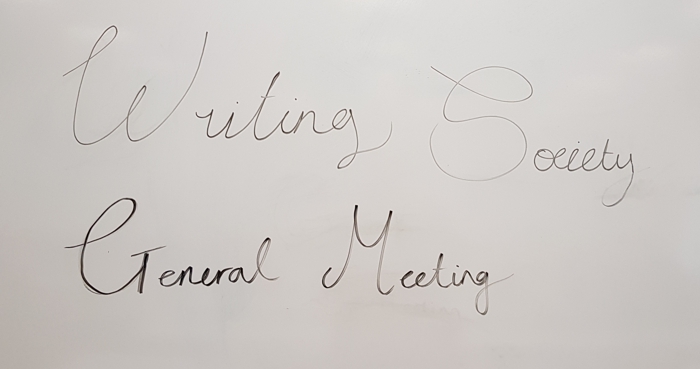 Writing Society
General Meeting